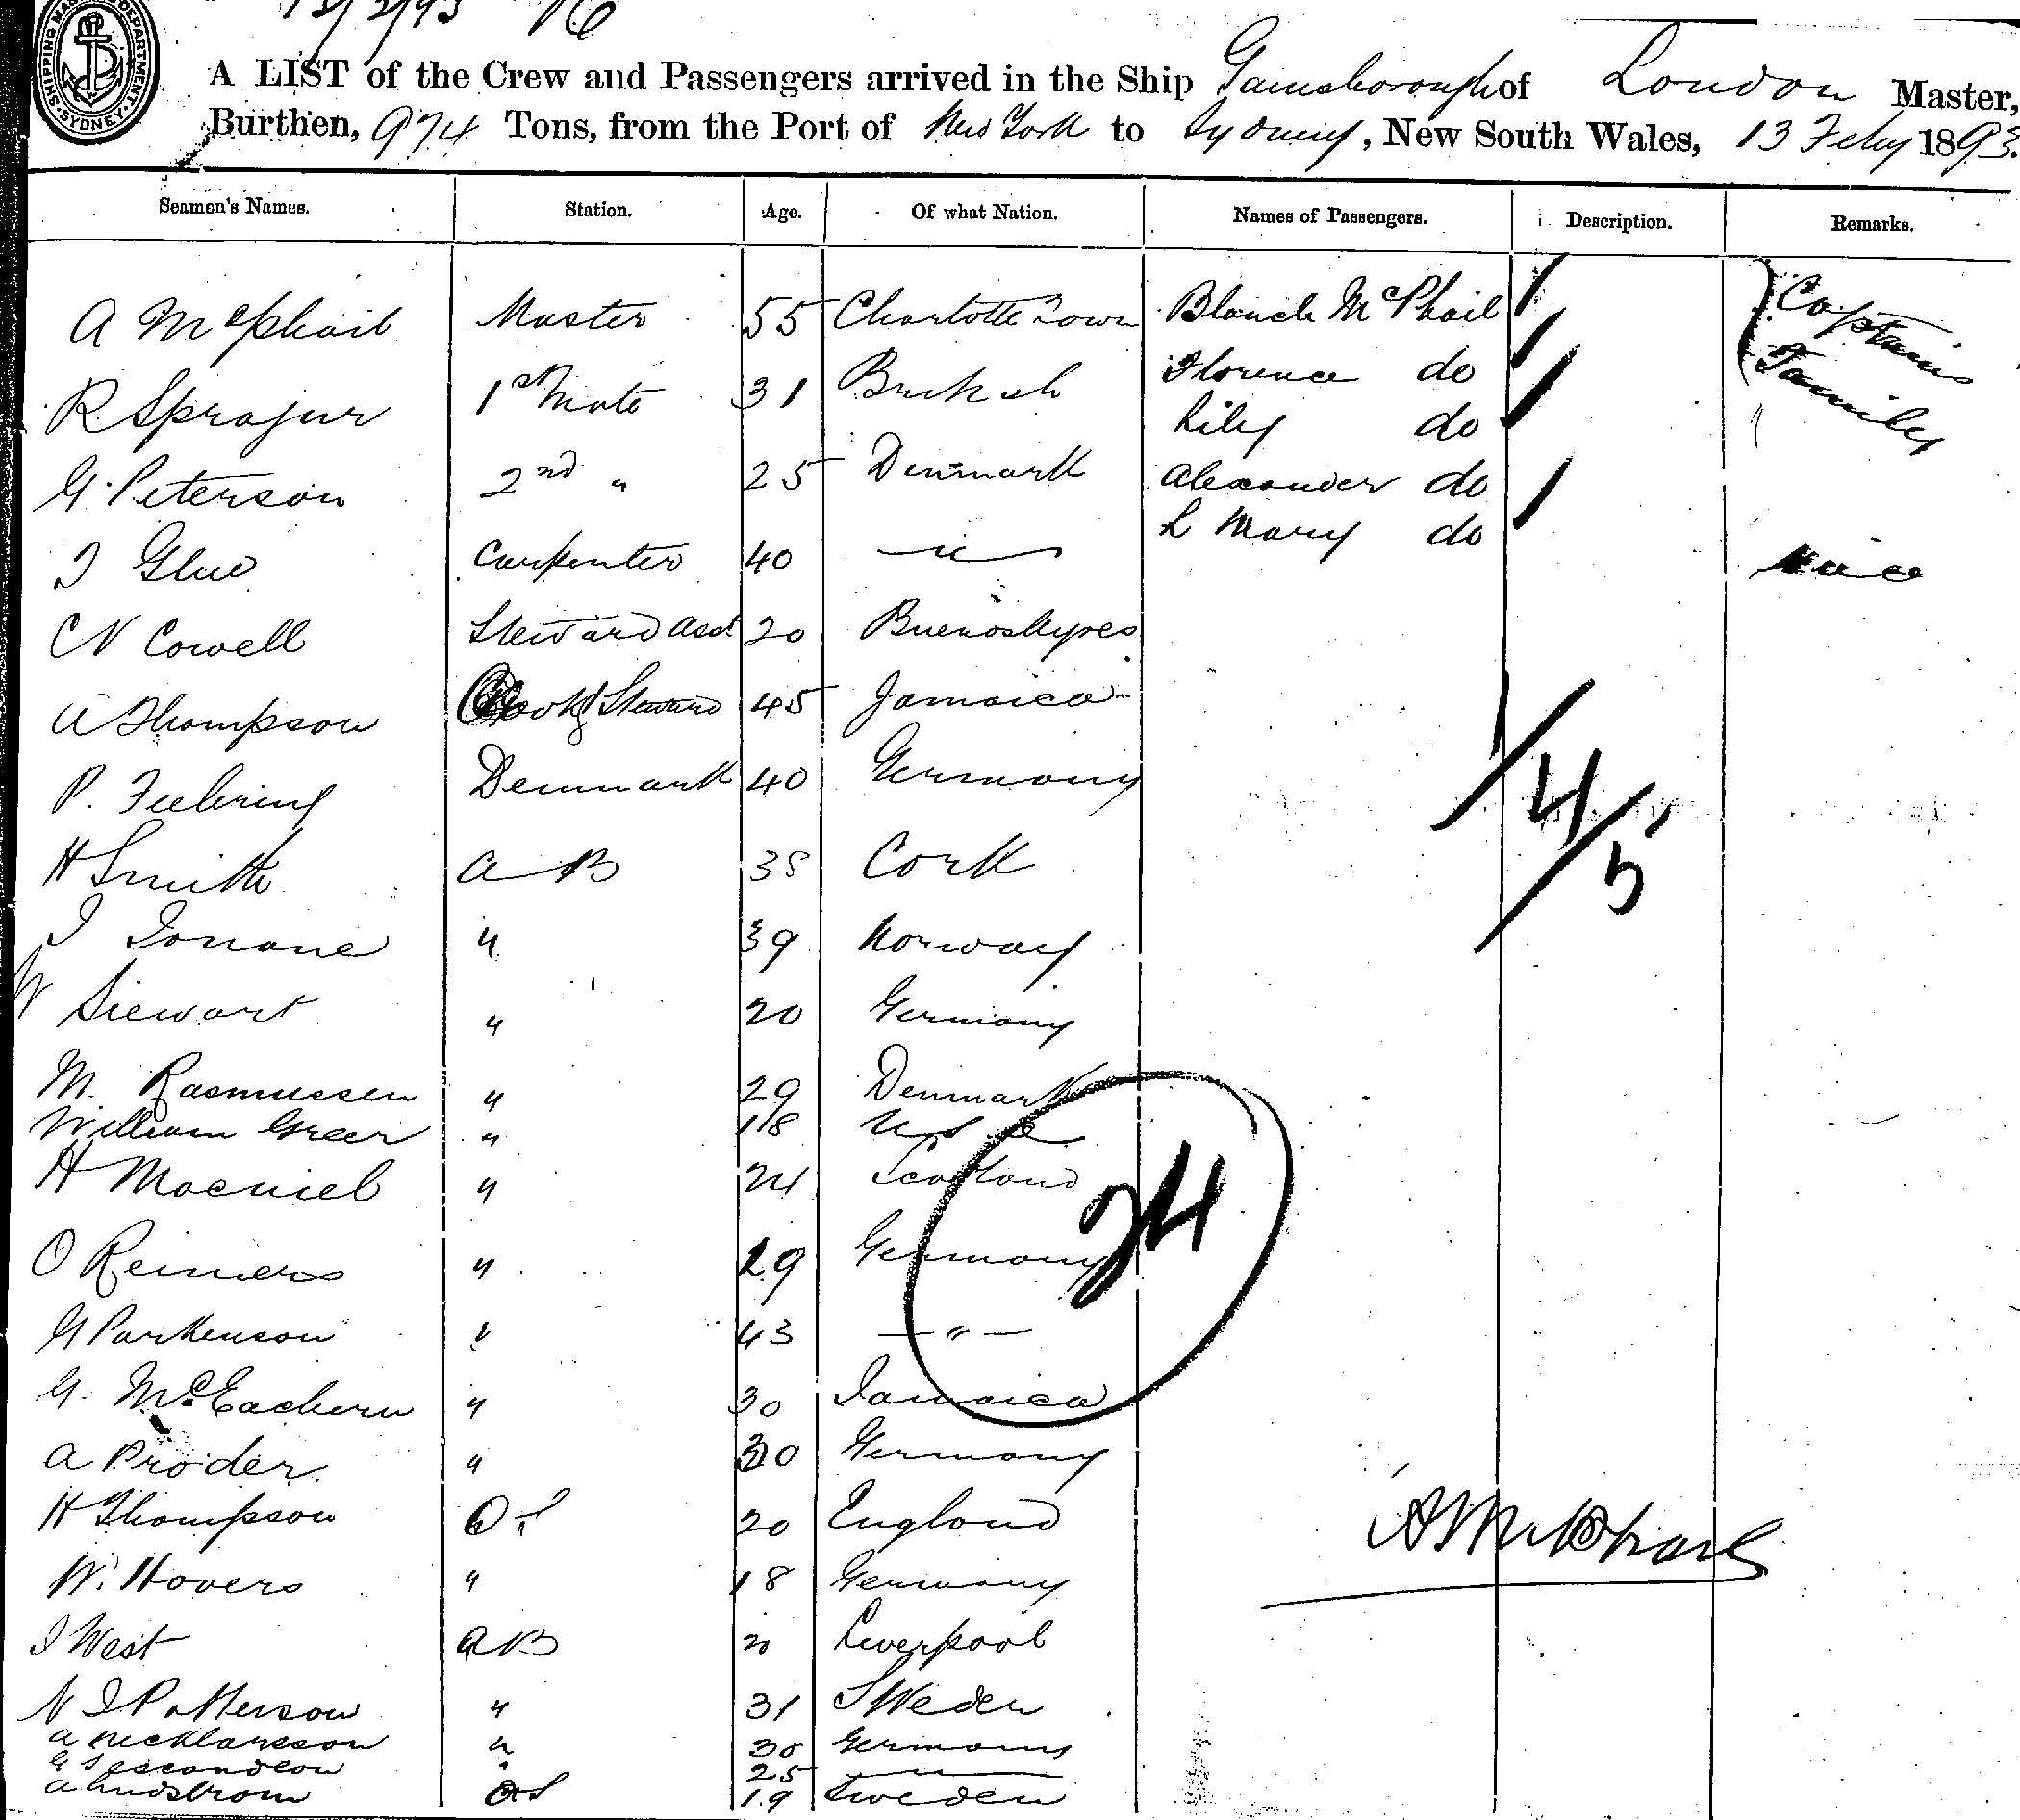 13/2/93
SHIPPING MASTER'S DEPARTMENT SYDNEY
A LIST of the Crew and Passengers arrived in the Ship Gainsborough of London Master,
Burthen, 974 Tons, from the Port of New York to Sydney, New South Wales, 13 Feby 1893.
Seamen's Names. Station. Age. Of what Nation. Names of Passengers. Description. Remarks.
A McPhail Master 55 Charlotte Town Blanch McPhail Captains
R Sprajur 1st Mate 31 British Florence do Family
G. Peterson 2nd " 25 Denmark Lily do
Alexander do
J Glue Carpenter 40 — " — L Mary do
CN Cowell Steward Asst 20 Buenos Ayres
A Thompson Cook & Steward 45 Jamaica
P. Feehring Denmark 40 Germany
1/4/5
H Smith AB 38 Cork
J " 39 Norway
W Siewart " 20 Germany
M. Rasmussen " 29 Denmark
William Greer " 18 USA
H Macniel " 24 Scotland
24
O Reimers " 29 Germany
G Parkenson " 43 — " —
G. McEachern " 30 Jamaica
A Proder " 30 Germany
H Thompson OS 20 England
A McPhail
W. Hovers " 18 Germany
J West AB 20 Liverpool
N J Patterson " 31 Sweden
A Nicklarsson " 30 Germany
" 25 — " —
A Lundstrom OS 19 Sweden